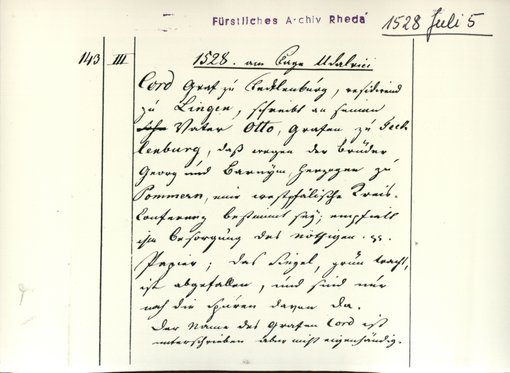 Fürstliches Archiv Rheda
1528 Juli 5
143 III 1528. am Tage Udalrici
Cord Graf zu Tecklenburg, residirend
zu Lingen, schreibt an seinen
Vater Otto, Grafen zu Teck-
lenburg, daß wegen der Brüder
Georg und Barnym, Herzogen zu
Pommern, eine westphälische Kreis-
Conferenz bestimmt sey; empfielt
ihm Besorgung des nöthigen
Papier; das Siegel, grün Wachs,
ist abgefallen, und sind nur
noch die Spuren davon da.
Der Name des Grafen Cord ist
unterschrieben aber nicht eigenhändig.